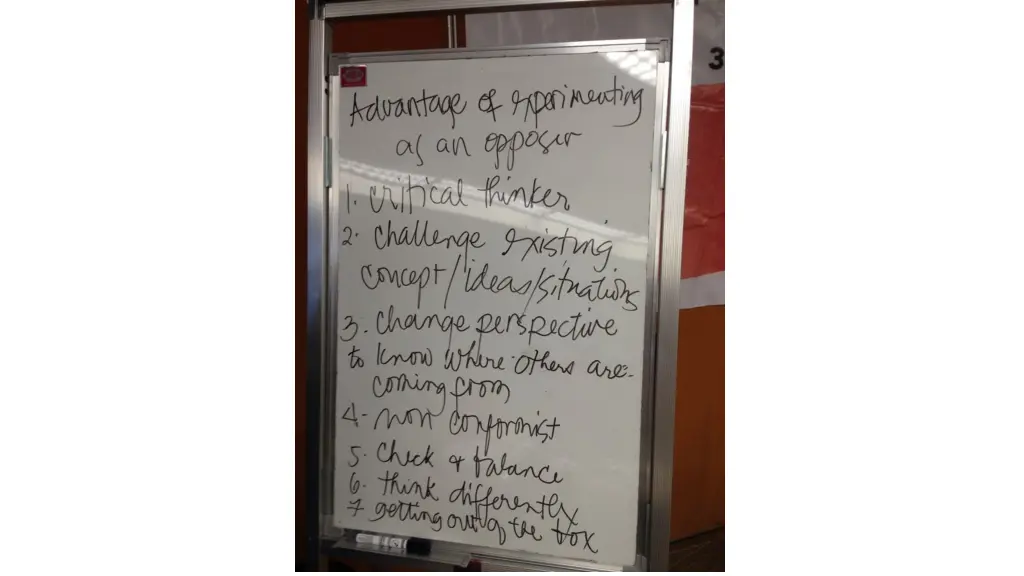 3
Advantage of experimenting
as an opposer
1. critical thinker
2. challenge existing
concept/ideas/situations
3. change perspective
to know where others are
coming from
4- non conformist
5. check & balance
6. think differently
7 getting out of the box